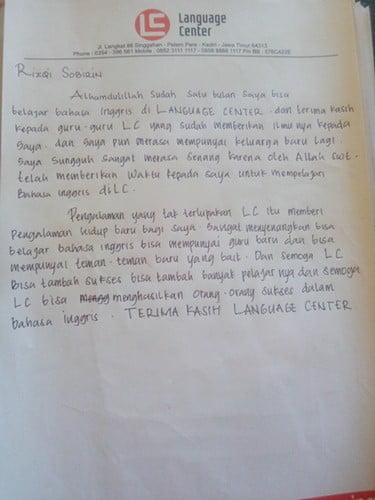 LC Language
Center
Jl. Langkat 88 Singgahan - Pelem Pare - Kediri - Jawa Timur 64213
Phone : 0354 - 396 561 Mobile : 0852 3111 1117 - 0856 8888 1117 Pin BB : 576CA22E
RIZQI SOBIRIN
Alhamdulillah sudah satu bulan saya bisa
belajar bahasa inggris di LANGUAGE CENTER . dan terima kasih
kepada guru - guru LC yang sudah memberikan ilmunya kepada
saya . dan saya pun merasa mempunyai keluarga baru lagi .
saya sungguh sangat merasa senang karena oleh Allah swt .
telah memberikan waktu kepada saya untuk mempelajari
Bahasa inggris di LC .
Pengalaman yang tak terlupakan LC itu memberi
Pengalaman hidup baru bagi saya . sangat menyenangkan bisa
belajar bahasa inggris bisa mempunyai guru baru dan bisa
mempunyai teman - teman baru yang baik . Dan semoga LC
Bisa tambah sukses bisa tambah banyak pelajar nya dan semoga
LC bisa menghasilkan orang - orang sukses dalam
bahasa inggris . TERIMA KASIH LANGUAGE CENTER